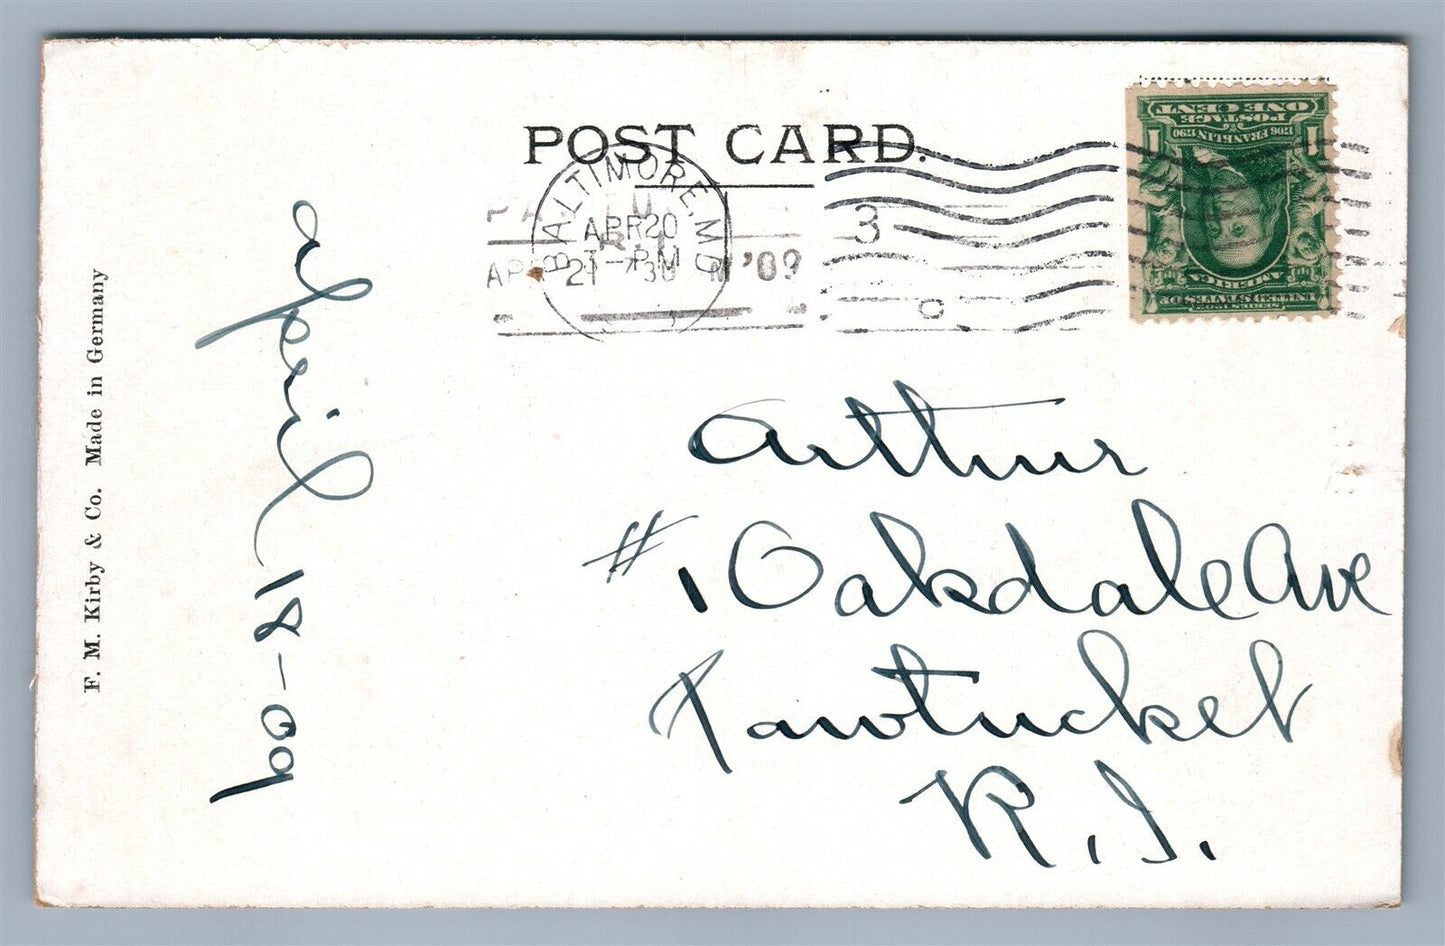 POST CARD.
BALTIMORE, MD
APR 20
3-PM
3
PA
APR 21 7 30 M '09
POSTAGE
ONE CENT
1706 FRANKLIN 1790
1 1
AMERICA
April 18-09
Arthur
#1 Oakdale Ave
Pawtucket
R.I.
F. M. Kirby & Co. Made in Germany